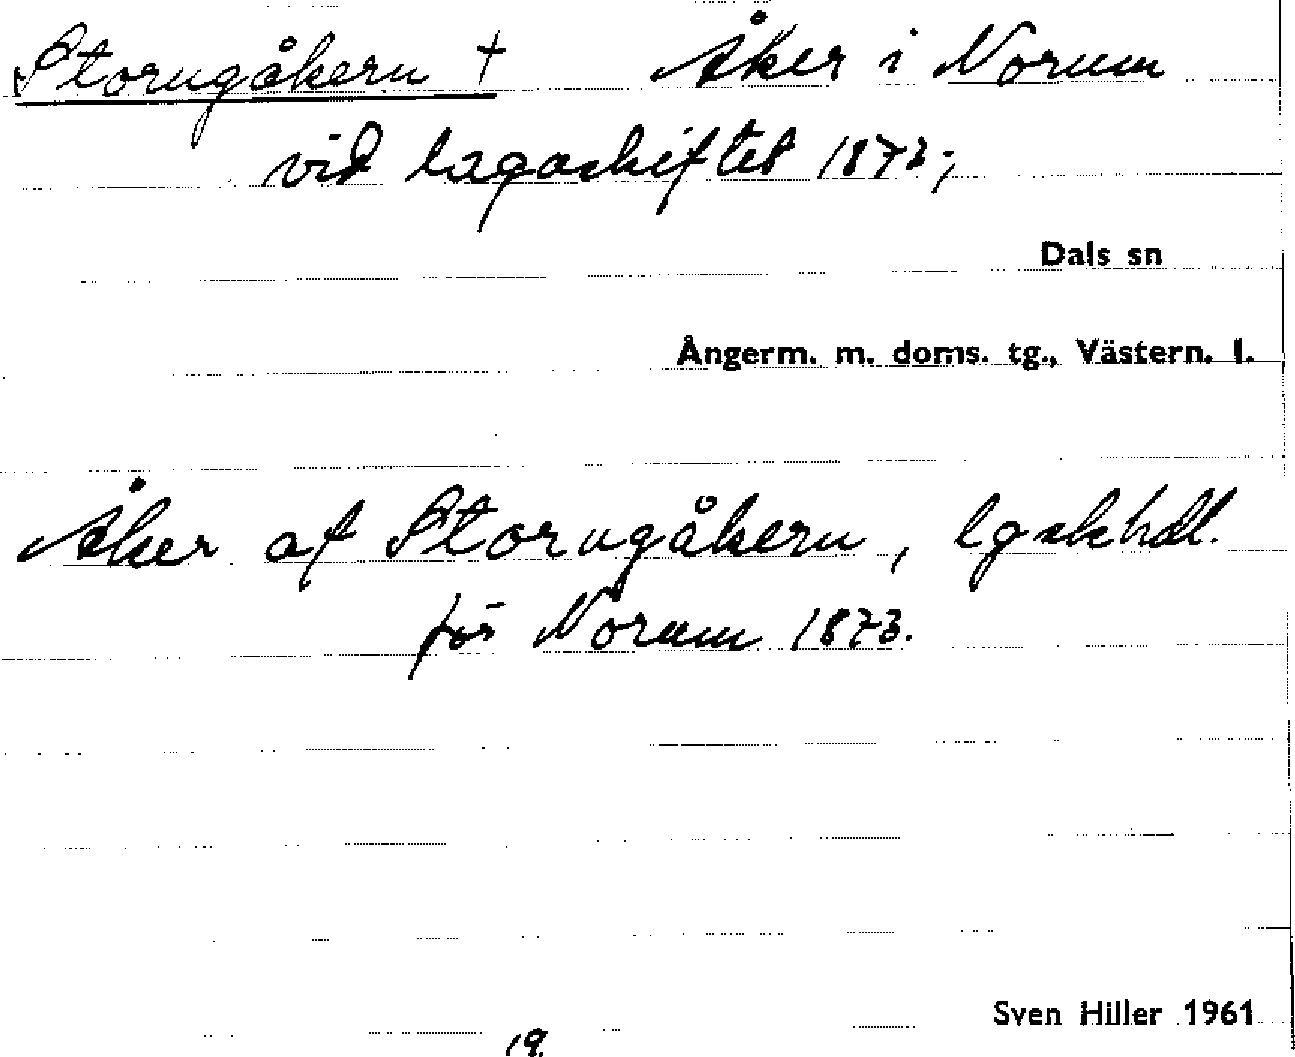 Storugåkern † Åker i Norum
vid lagaskiftet 1873;
Dals sn
Ångerm. m. doms. tg., Västern. l.
Åker af Storugåkern, lgskhdl.
för Norum 1873.
Sven Hiller 1961
19.